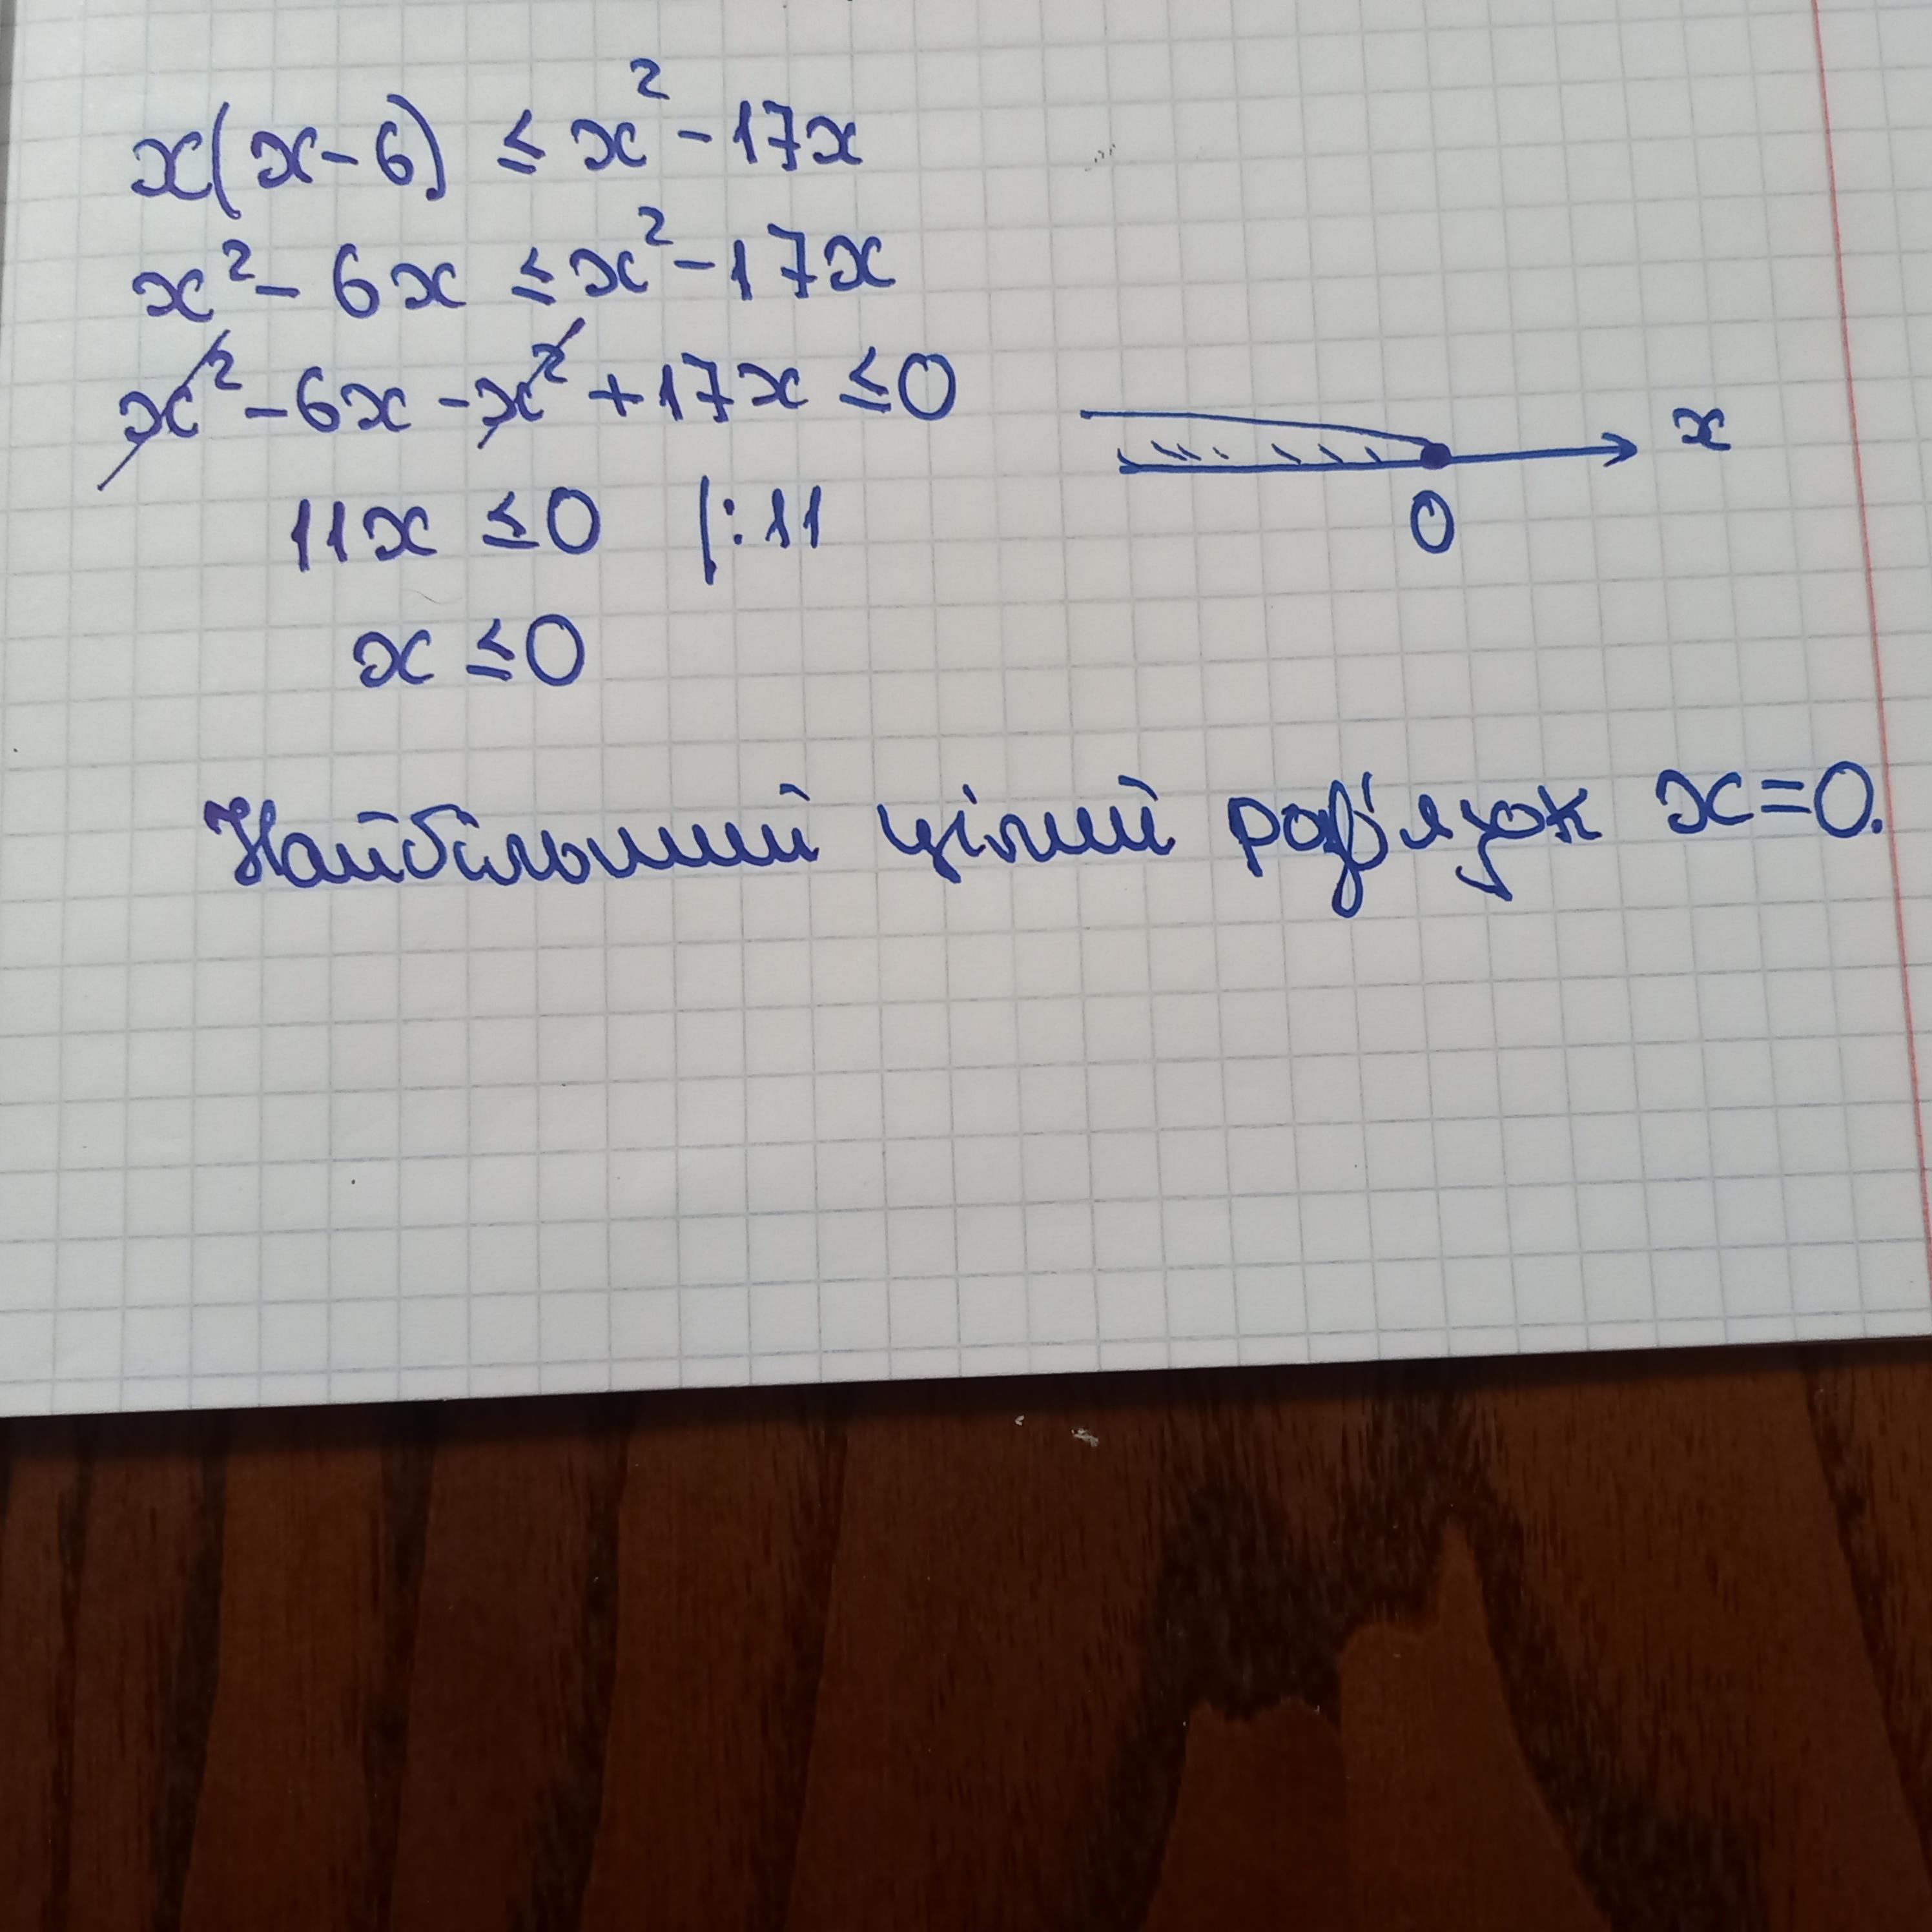 x(x-6) ≤ x² - 17x
x² - 6x ≤ x² - 17x
x² - 6x - x² + 17x ≤ 0
x
0
11x ≤ 0 |:11
x ≤ 0
Найбільший цілий розв'язок x=0.